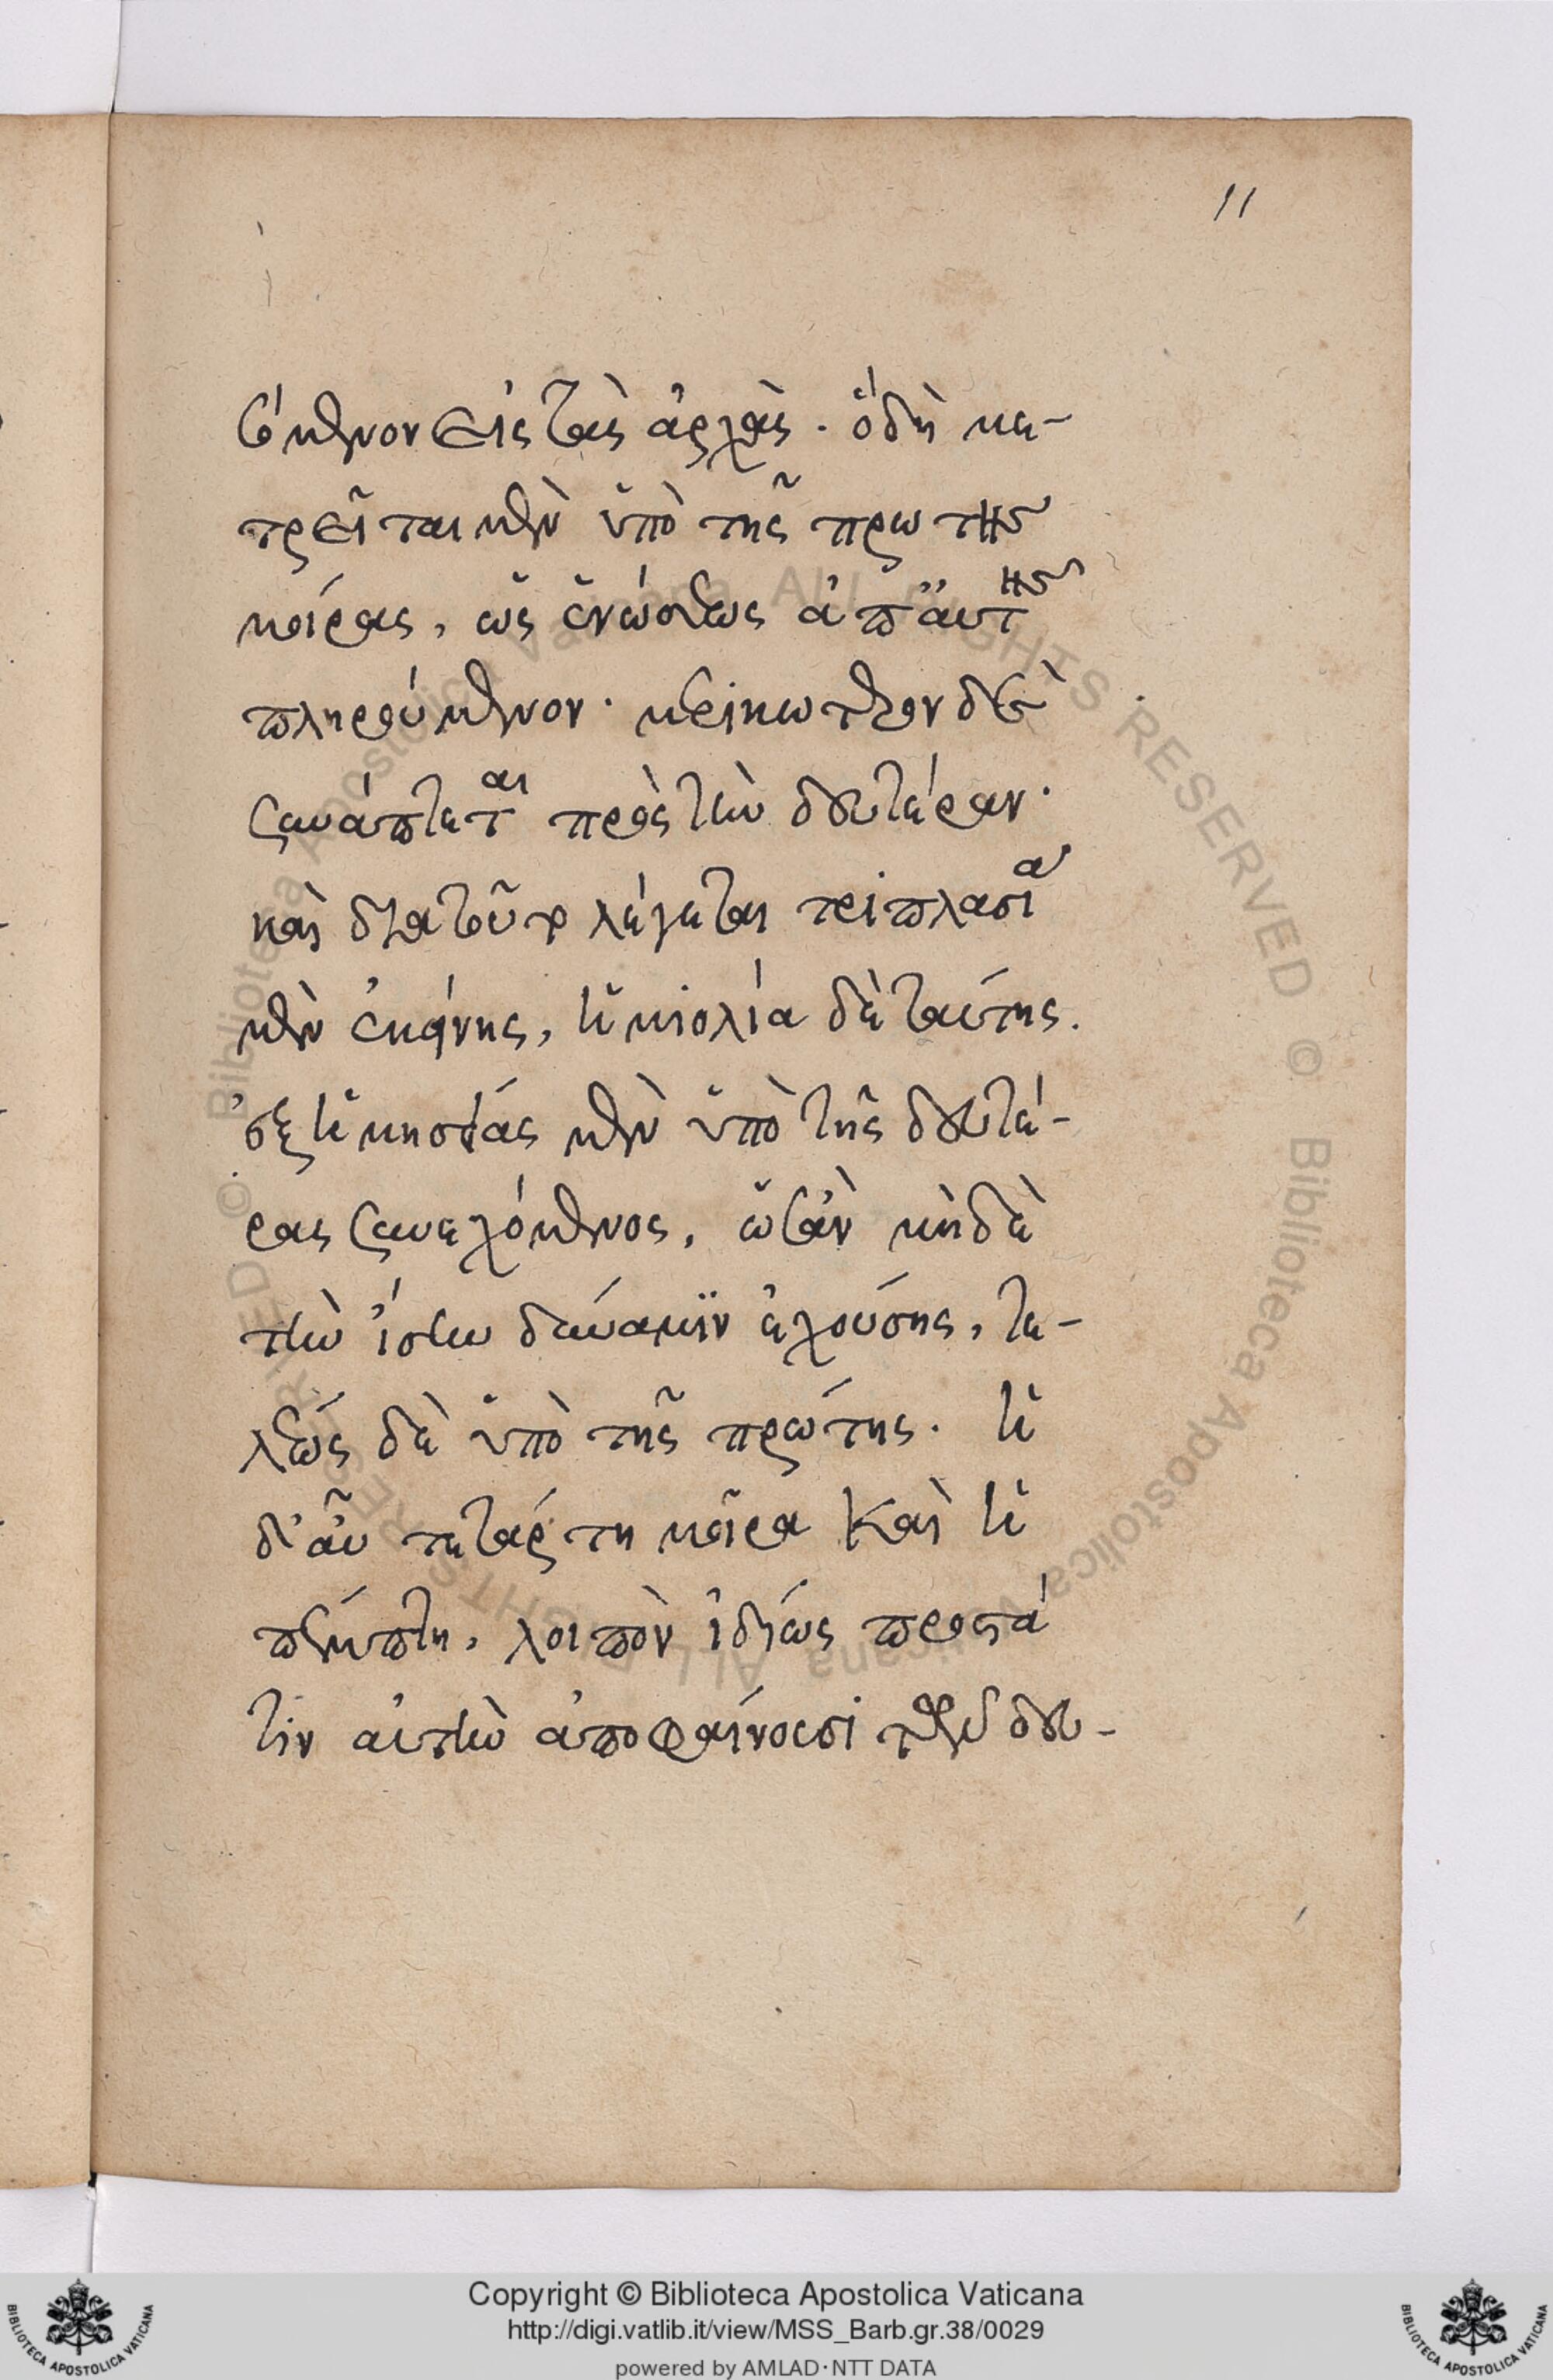 11
τόμενον εἰς τὰς ἀρχὰς. ὃ δὴ με-
τρεῖται μὲν ὑπὸ τῆς πρώτης
μοίρας, ὡς ἑνώσεως ἀπ' αὐτῆς
πληρούμενον. κρεῖττον δὲ
συνάπτεται πρὸς τὴν δευτέραν.
καὶ διὰ τοῦτο λέγεται τριπλασία
μὲν ἐκείνης, ἡμιολία δὲ ταύτης.
ἐξ ἡμισείας μὲν ὑπὸ τῆς δευτέ-
ρας συνεχόμενος, ὡσὰν μηδὲ
τὴν ἴσην δύναμιν ἐχούσης, τε-
λέως δὲ ὑπὸ τῆς πρώτης. ἡ
δ' αὖ τετάρτη μοῖρα καὶ ἡ
πέμπτη, λοιπὸν ἰδίως προστά
τιν αὐτὴν ἀποφαίνουσι τῶν δευ-
Copyright © Biblioteca Apostolica Vaticana
http://digi.vatlib.it/view/MSS_Barb.gr.38/0029
powered by AMLAD·NTT DATA